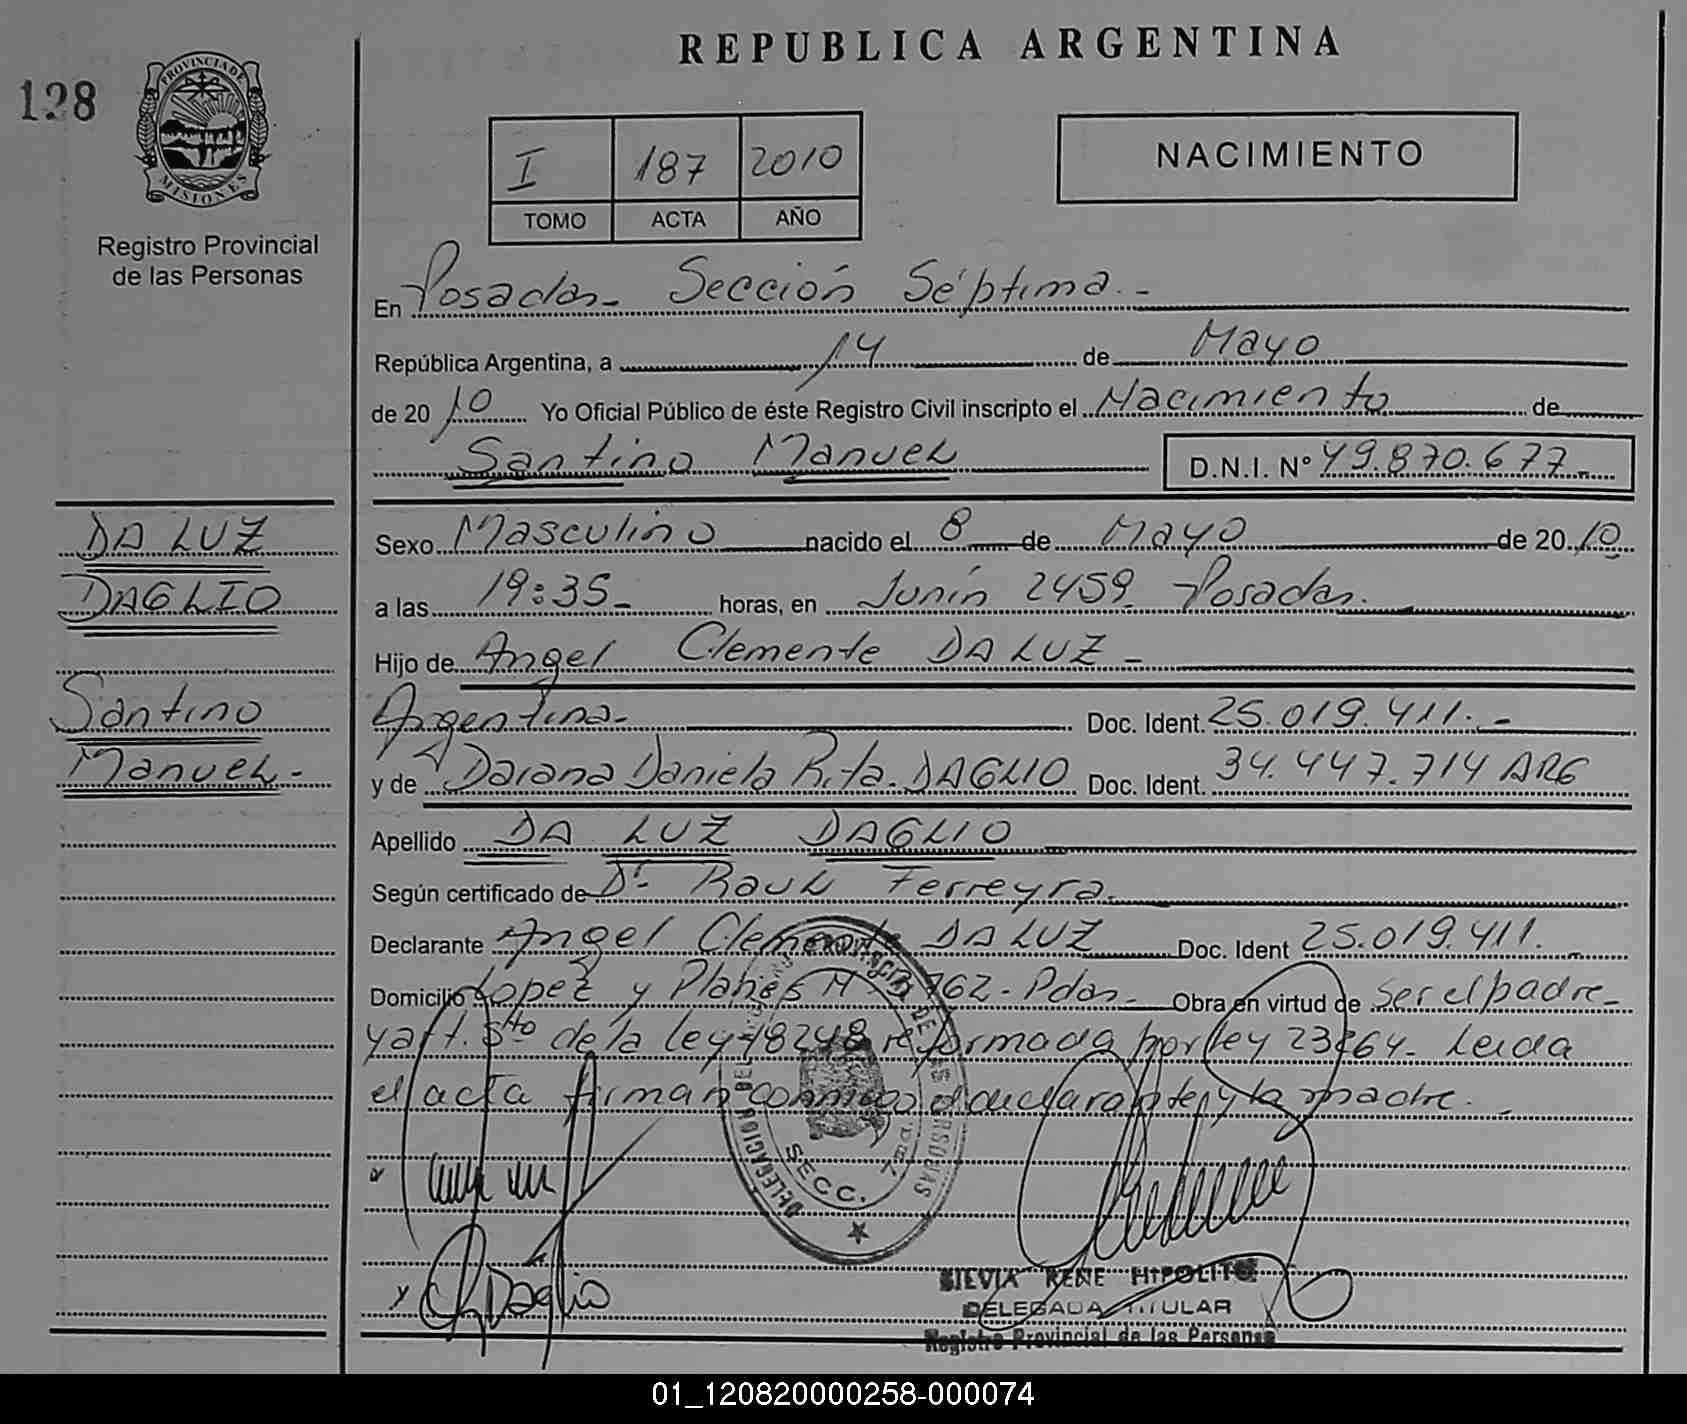 REPUBLICA ARGENTINA
128
PROVINCIA DE
MISIONES
Registro Provincial
de las Personas
I 187 2010
TOMO ACTA AÑO
NACIMIENTO
En Posadas- Sección Séptima.-
República Argentina, a 14 de Mayo
de 2010 Yo Oficial Público de éste Registro Civil inscripto el Nacimiento de
Santino Manuel D.N.I. Nº 49.870.677.-
DA LUZ
DAGLIO
Santino
Manuel.-
Sexo Masculino nacido el 8 de Mayo de 2010
a las 19:35- horas, en Junín 2459 Posadas.
Hijo de Angel Clemente DA LUZ -
Argentina- Doc. Ident. 25.019.411.-
y de Daiana Daniela Rita DAGLIO Doc. Ident. 34.447.714 ARG
Apellido DA LUZ DAGLIO
Según certificado de Dr. Raul Ferreyra.
Declarante Angel Clemente DA LUZ Doc. Ident 25.019.411.-
Domicilio Lopez y Planes 762- Pdas- Obra en virtud de ser el padre-
y art. 5to de la ley 18248 reformada por ley 23264- Leida
el acta firman conmigo el declarante y la madre.
DELEGACION
PROVINCIAL DE LAS PERSONAS
SECC. 7ma.
y Daglio
SILVIA RENE HIPOLITO
DELEGADA TITULAR
Registro Provincial de las Personas
01_120820000258-000074